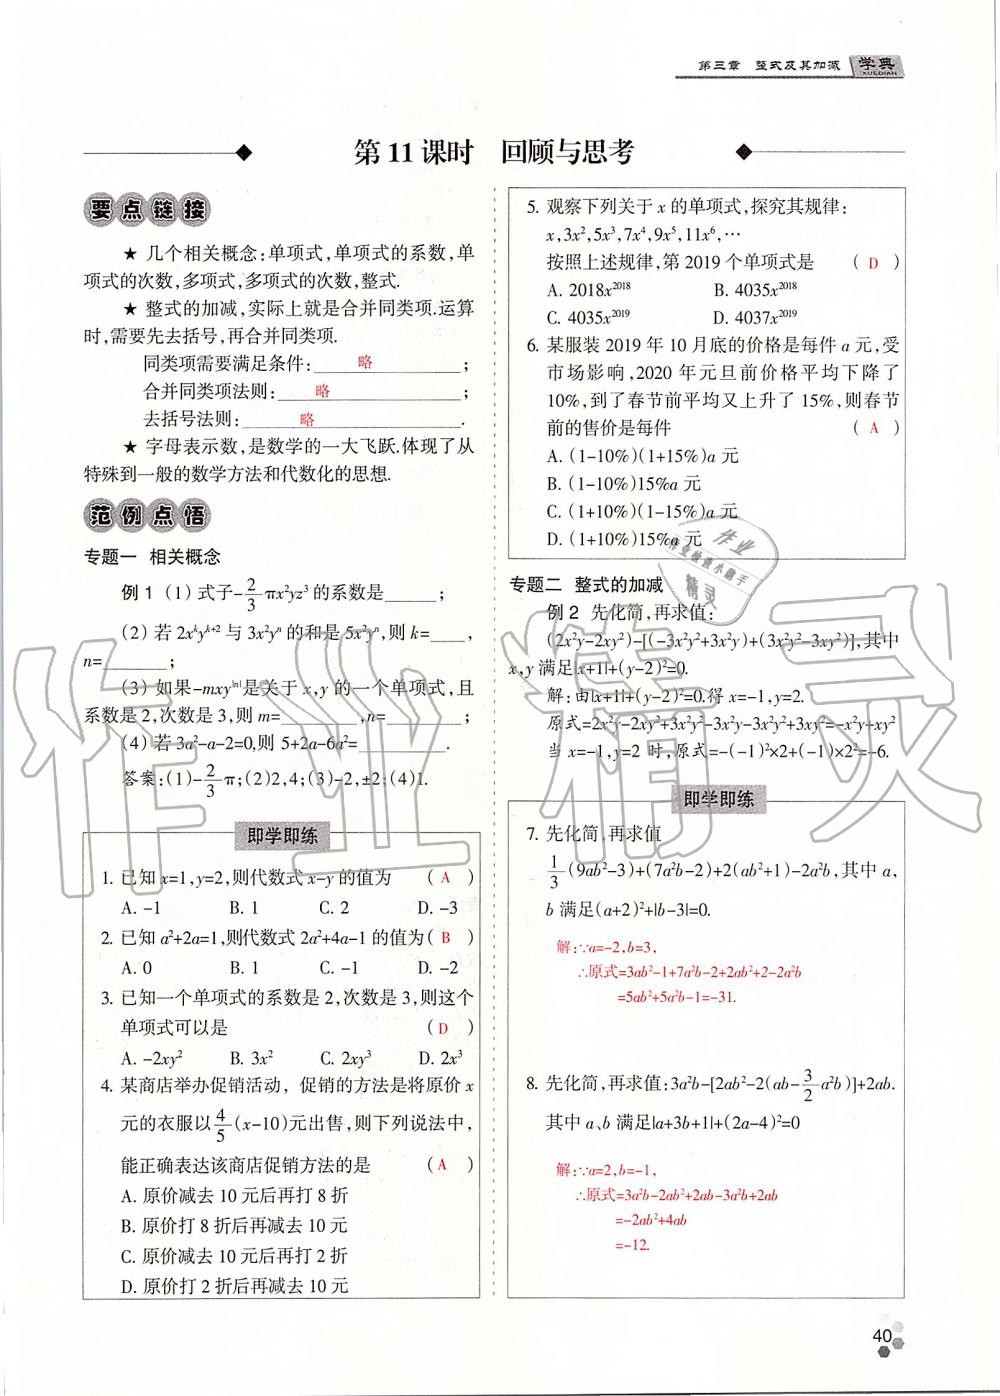 第三章 整式及其加减 学典
XUEDIAN
第11课时 回顾与思考
要点链接
★ 几个相关概念:单项式,单项式的系数,单
项式的次数,多项式,多项式的次数,整式.
★ 整式的加减,实际上就是合并同类项.运算
时,需要先去括号,再合并同类项.
同类项需要满足条件: 略 ;
合并同类项法则: 略 ;
去括号法则: 略 .
★ 字母表示数,是数学的一大飞跃.体现了从
特殊到一般的数学方法和代数化的思想.
范例点悟
专题一 相关概念
例1 (1)式子-2/3πx²yz³的系数是______;
(2)若2xᵏyᵏ⁺²与3x²yⁿ的和是5x²yⁿ,则k=____,
n=______;
(3)如果-mxy|ⁿ|是关于x,y的一个单项式,且
系数是2,次数是3,则m=______,n=______;
(4)若3a²-a-2=0,则5+2a-6a²=______.
答案:(1)-2/3π;(2)2,4;(3)-2,±2;(4)1.
即学即练
1. 已知x=1,y=2,则代数式x-y的值为 ( A )
A. -1 B. 1 C. 2 D. -3
2. 已知a²+2a=1,则代数式2a²+4a-1的值为( B )
A. 0 B. 1 C. -1 D. -2
3. 已知一个单项式的系数是2,次数是3,则这个
单项式可以是 ( D )
A. -2xy² B. 3x² C. 2xy³ D. 2x³
4. 某商店举办促销活动, 促销的方法是将原价x
元的衣服以4/5(x-10)元出售,则下列说法中,
能正确表达该商店促销方法的是 ( A )
A. 原价减去10元后再打8折
B. 原价打8折后再减去10元
C. 原价减去10元后再打2折
D. 原价打2折后再减去10元
5. 观察下列关于x的单项式,探究其规律:
x,3x²,5x³,7x⁴,9x⁵,11x⁶,…
按照上述规律,第2019个单项式是 ( D )
A. 2018x²⁰¹⁸ B. 4035x²⁰¹⁸
C. 4035x²⁰¹⁹ D. 4037x²⁰¹⁹
6. 某服装2019年10月底的价格是每件a元,受
市场影响,2020年元旦前价格平均下降了
10%,到了春节前平均又上升了15%,则春节
前的售价是每件 ( A )
A. (1-10%)(1+15%)a元
B. (1-10%)15%a元
C. (1+10%)(1-15%)a元
D. (1+10%)15%a元
专题二 整式的加减
例2 先化简,再求值:
(2x²y-2xy²)-[(-3x²y²+3x²y)+(3x²y²-3xy²)],其中
x,y满足|x+1|+(y-2)²=0.
解:由|x+1|+(y-2)²=0.得x=-1,y=2.
原式=2x²y-2xy²+3x²y²-3x²y-3x²y²+3xy²=-x²y+xy²
当x=-1,y=2 时,原式=-(-1)²×2+(-1)×2²=-6.
即学即练
7. 先化简,再求值
1/3(9ab²-3)+(7a²b-2)+2(ab²+1)-2a²b,其中a,
b满足(a+2)²+|b-3|=0.
解:∵a=-2,b=3,
∴原式=3ab²-1+7a²b-2+2ab²+2-2a²b
=5ab²+5a²b-1=-31.
8. 先化简,再求值:3a²b-[2ab²-2(ab-3/2a²b)]+2ab.
其中a、b满足|a+3b+1|+(2a-4)²=0
解:∵a=2,b=-1,
∴原式=3a²b-2ab²+2ab-3a²b+2ab
=-2ab²+4ab
=-12.
40
作业精灵
作业
作业检查小助手
精灵